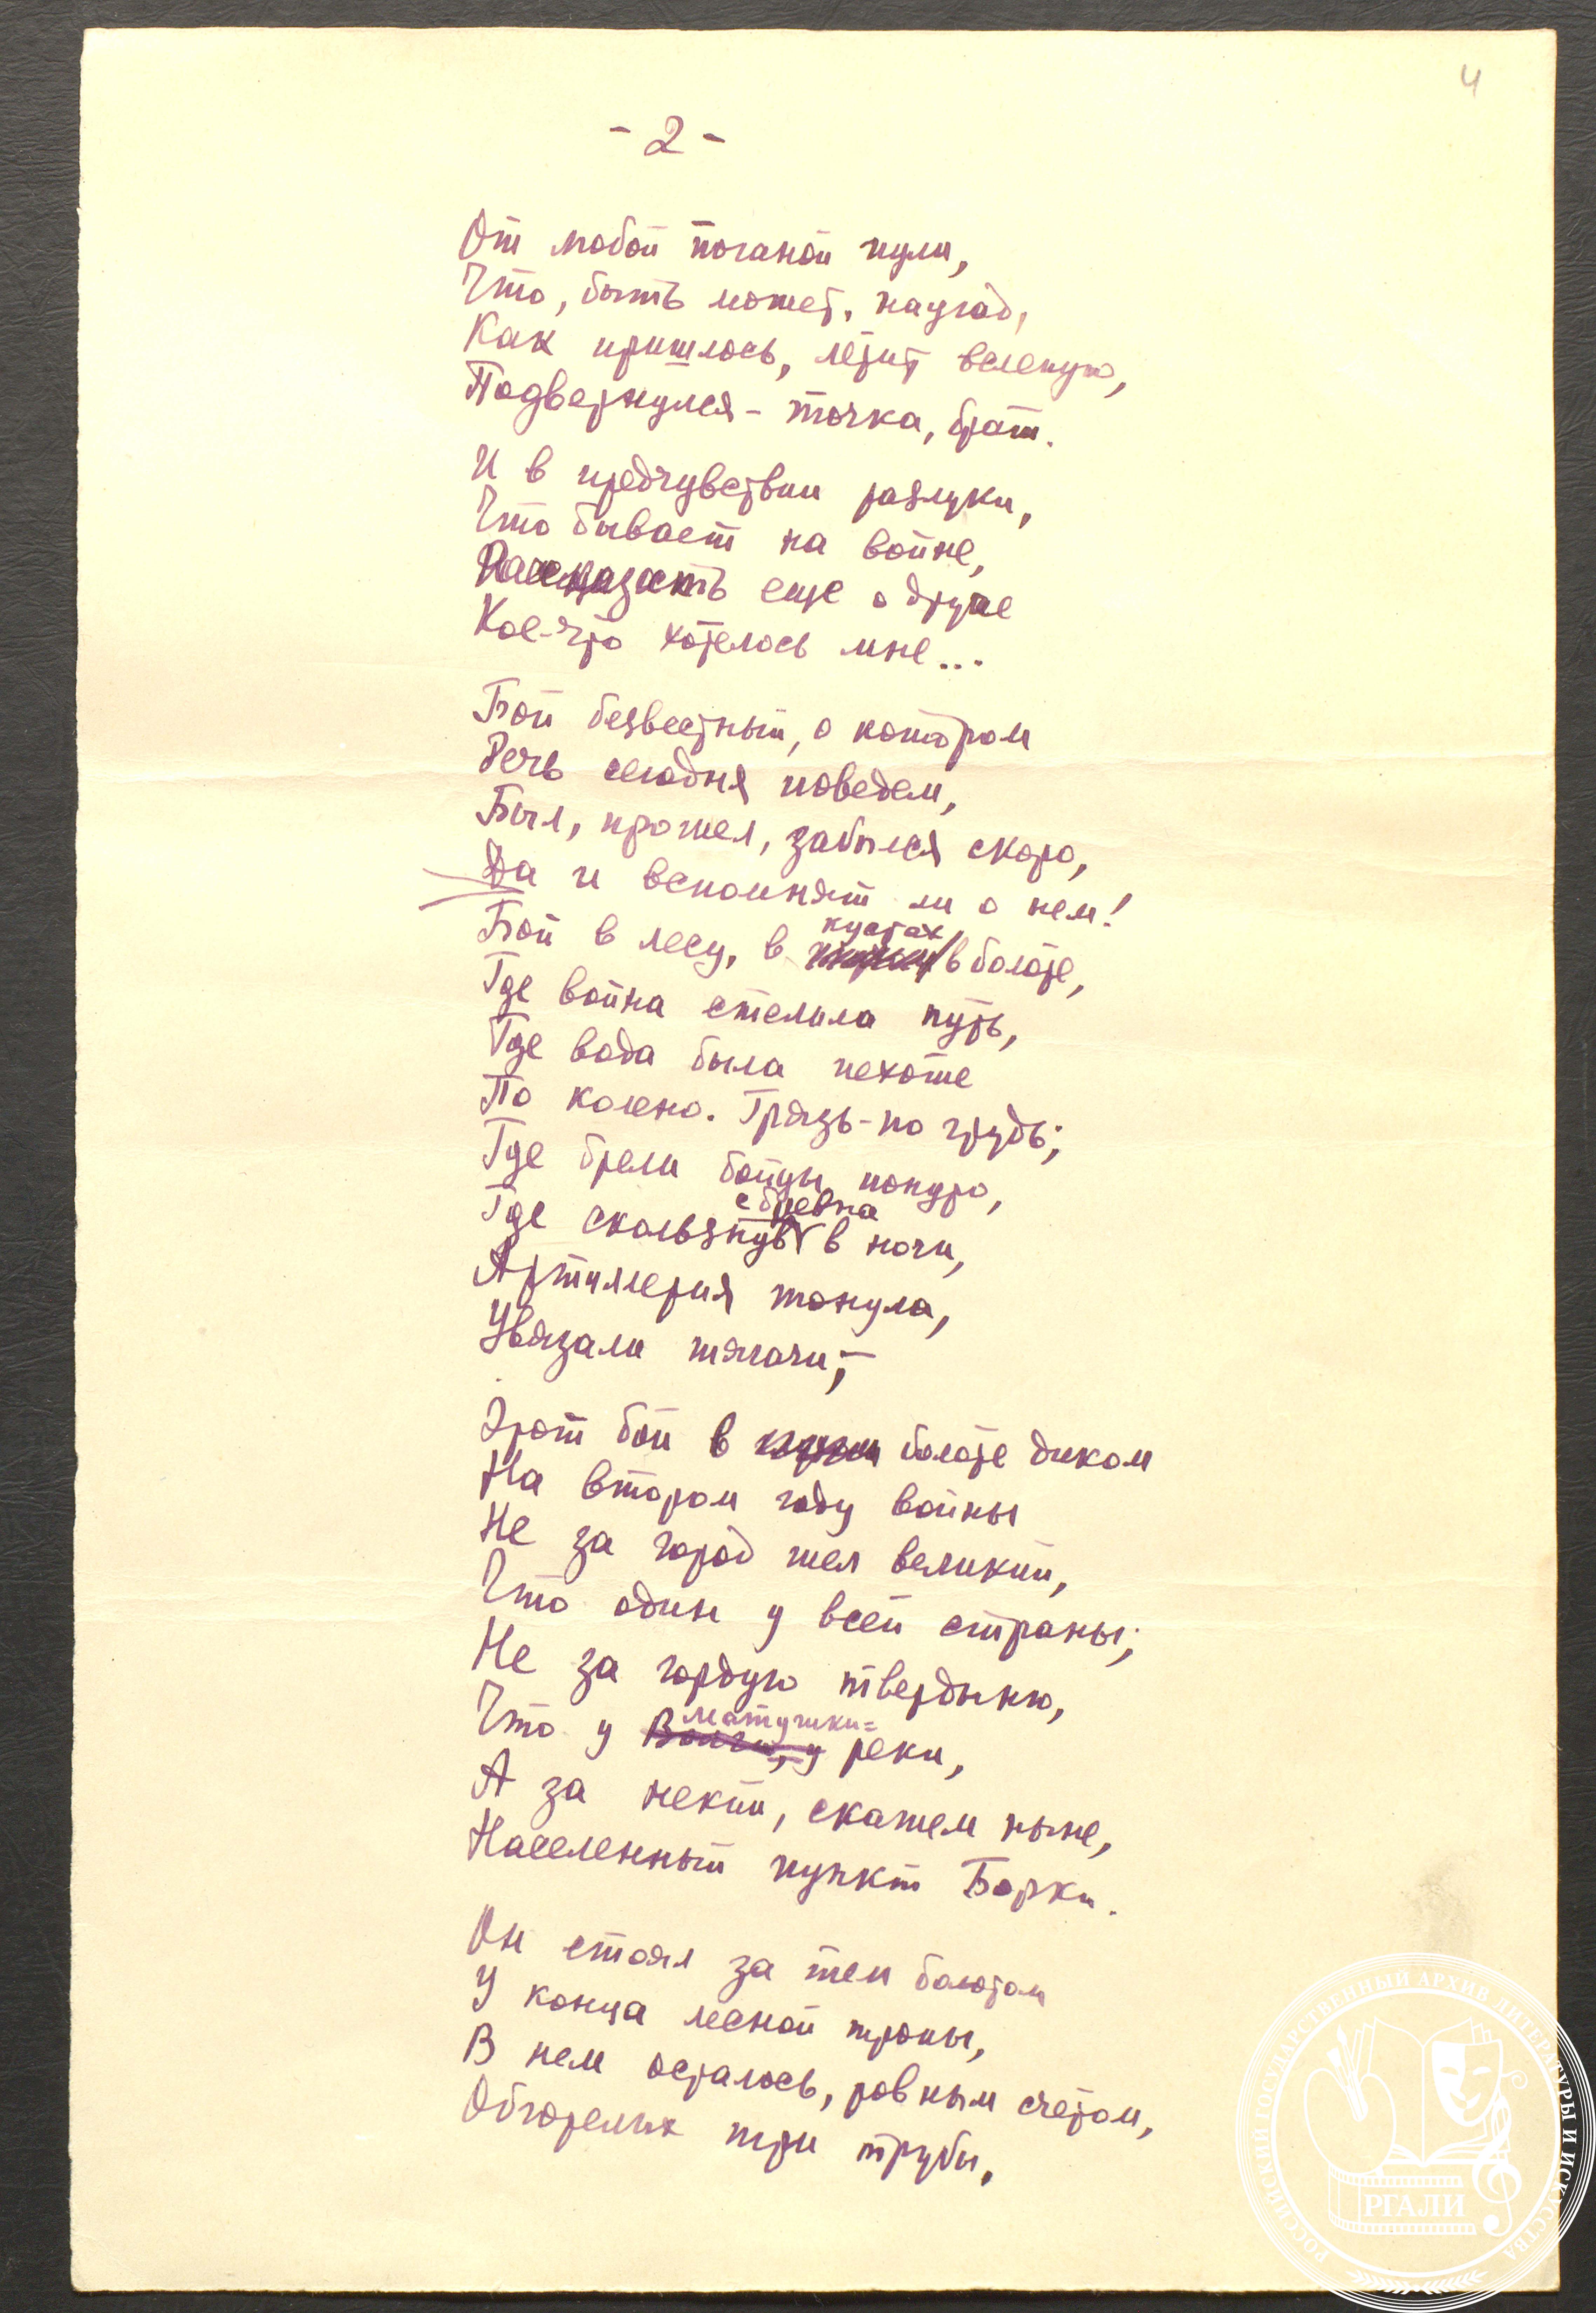 4
- 2 -
От любой поганой пули,
Что, быть может, наугад,
Как пришлось, летит вслепую,
Подвернулся - точка, брат.
И в предчувствии разлуки,
Что бывает на войне,
Рассказать еще о друге
Кое-что хотелось мне...
Бой безвестный, о котором
Речь сегодня поведем,
Был, прошел, забылся скоро,
Да и вспомнят ли о нем!
кустах,
Бой в лесу, в в болоте,
Где война стелила путь,
Где вода была пехоте
По колено. Грязь - по грудь;
Где брели бойцы понуро,
с бревна
Где скользнув в ночи,
Артиллерия тонула,
Увязали тягачи; -
Этот бой в болоте диком
На втором году войны
Не за город шел великий,
Что один у всей страны;
Не за гордую твердыню,
матушки-
Что у Волги, у реки,
А за некий, скажем ныне,
Населенный пункт Борки.
Он стоял за тем болотом
У конца лесной тропы,
В нем осталось, ровным счетом,
Обгорелых три трубы.
РОССИЙСКИЙ ГОСУДАРСТВЕННЫЙ АРХИВ ЛИТЕРАТУРЫ И ИСКУССТВА
РГАЛИ